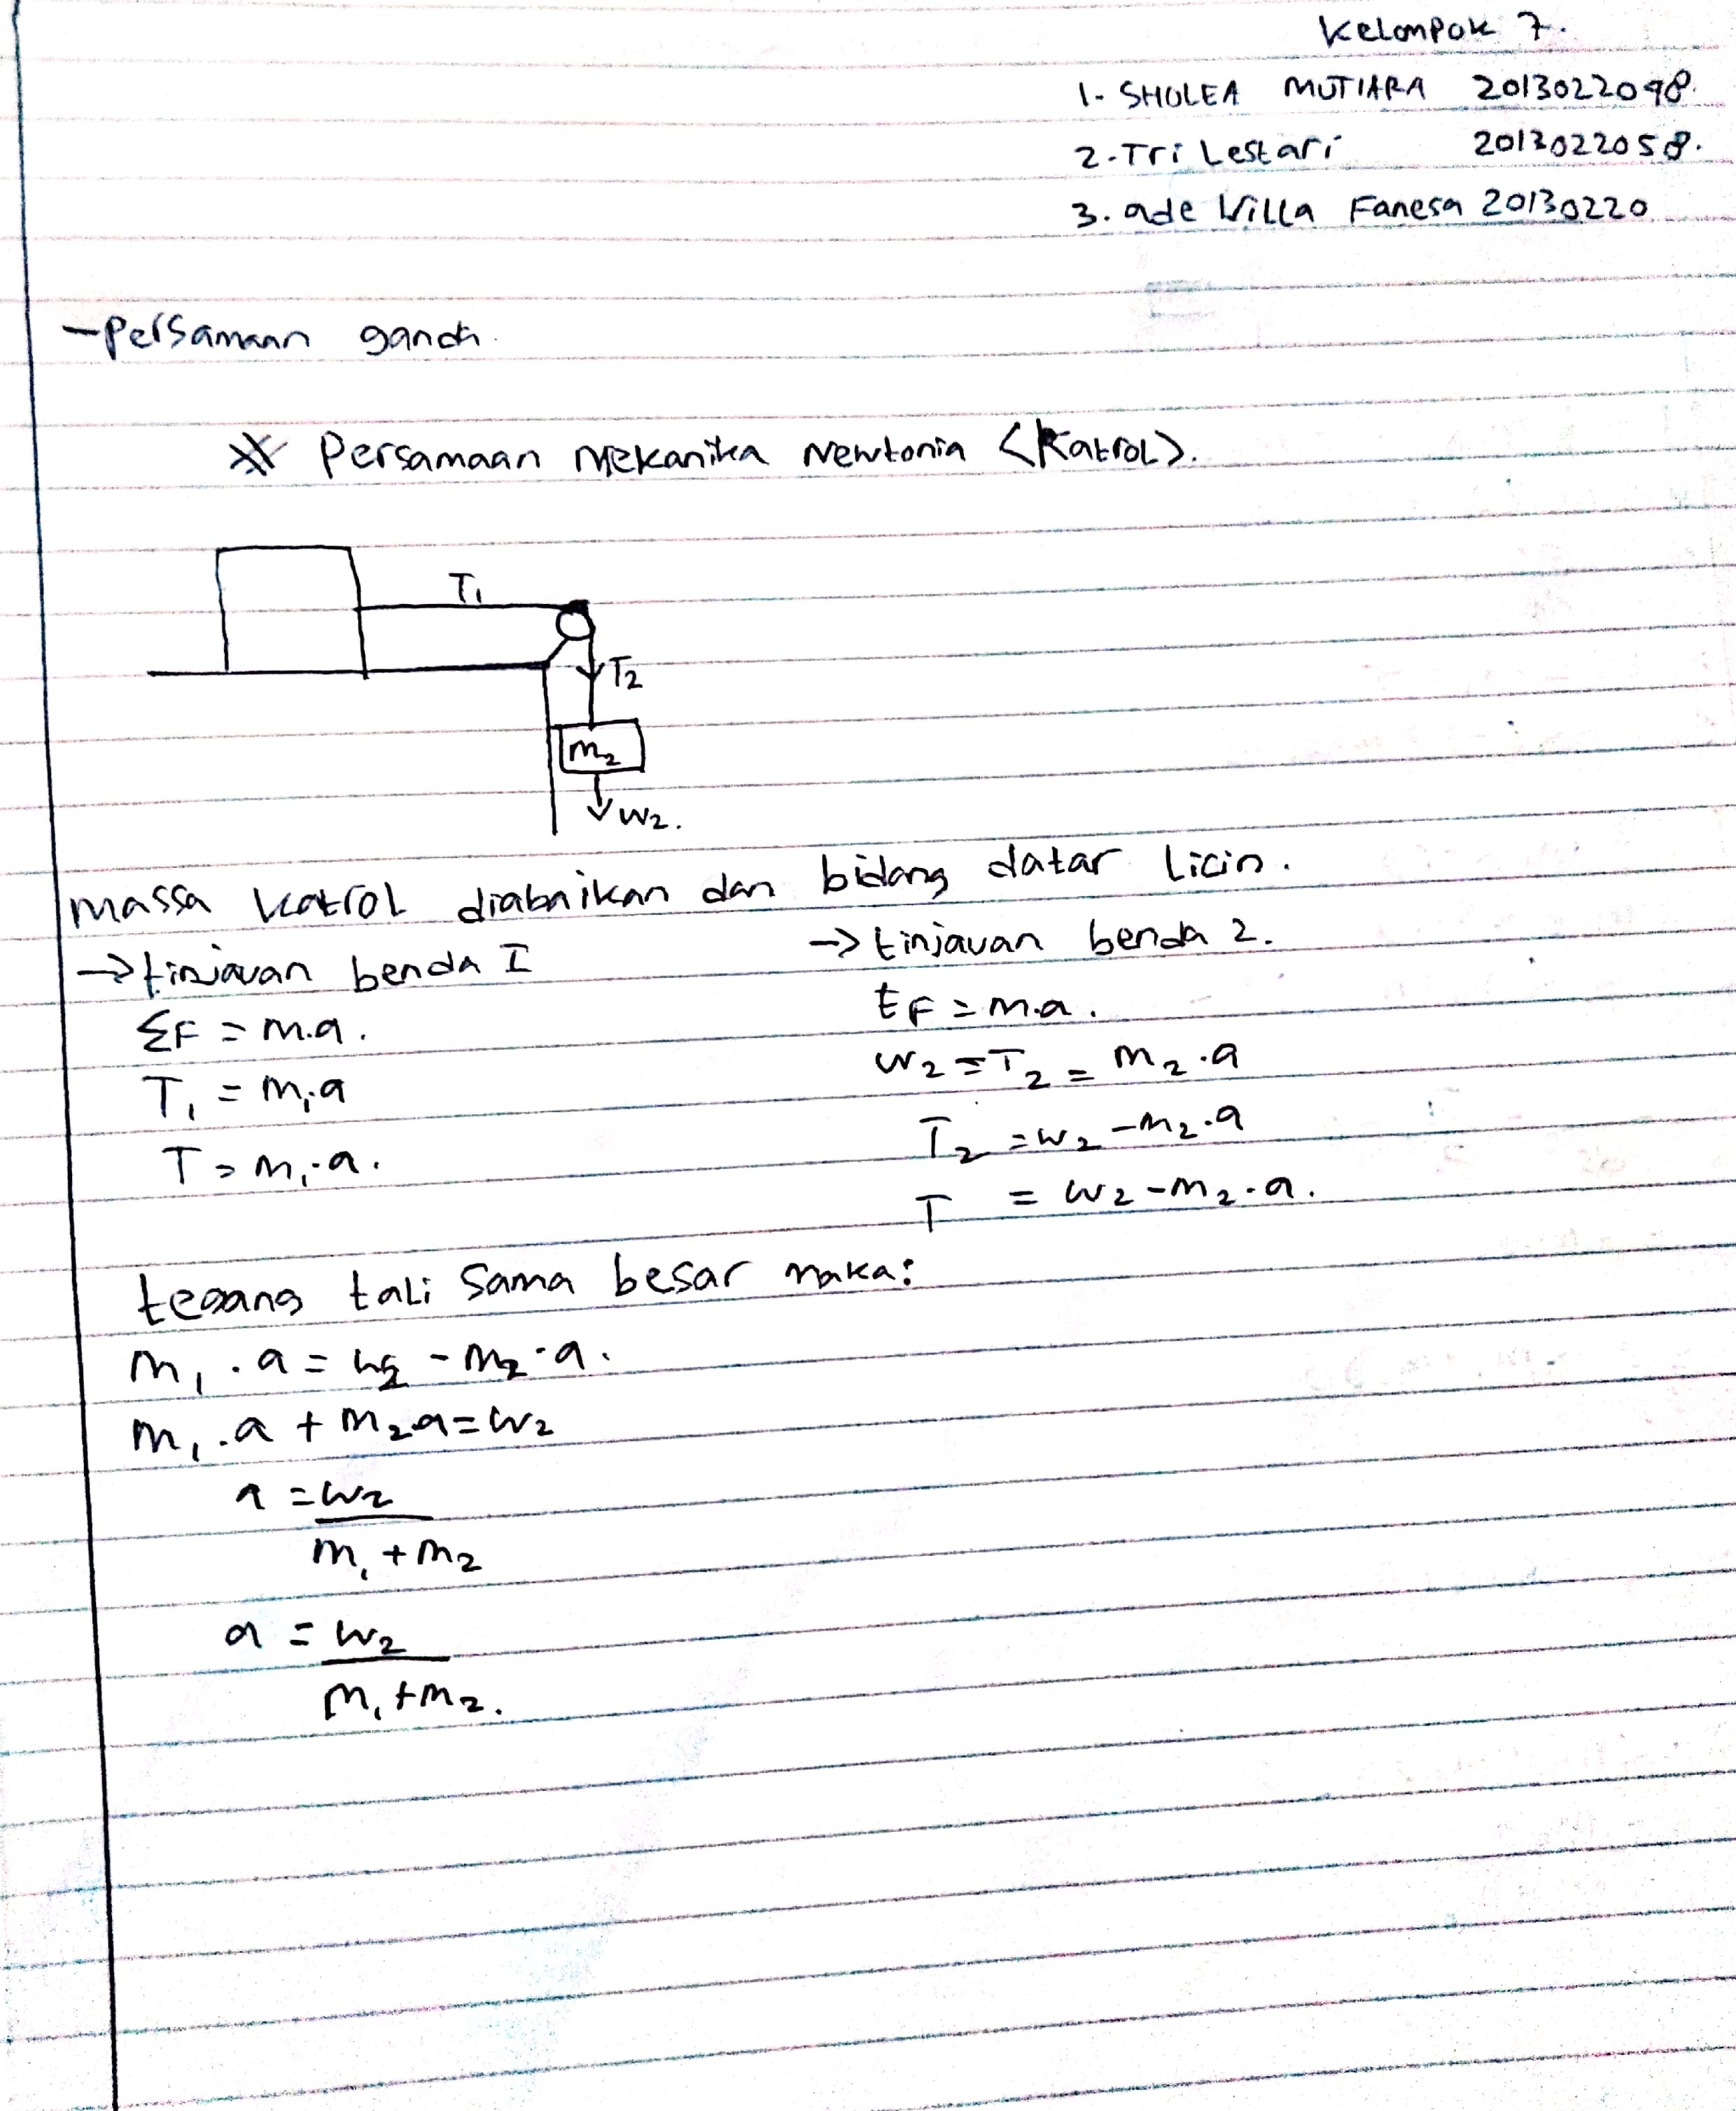 Kelompok 7.
1. SHOLEA MUTIARA 2013022098.
2. Tri Lestari 2013022058.
3. ade Villa Fanesa 20130220
- Persamaan
Persamaan Mekanika Newtonia (Katrol).
T₁
T₂
m₂
w₂.
massa katrol diabaikan dan bidang datar licin.
→ tinjauan benda I
ΣF = m.a.
T₁ = m₁.a
T = m₁.a.
→ tinjauan benda 2.
ΣF = m.a.
w₂ = T₂ = m₂.a
T₂ = w₂ - m₂.a
T = w₂ - m₂.a.
tegang tali sama besar maka:
m₁ . a = w₂ - m₂.a.
m₁.a + m₂.a = w₂
a = w₂
m₁ + m₂
a = w₂
m₁ + m₂.